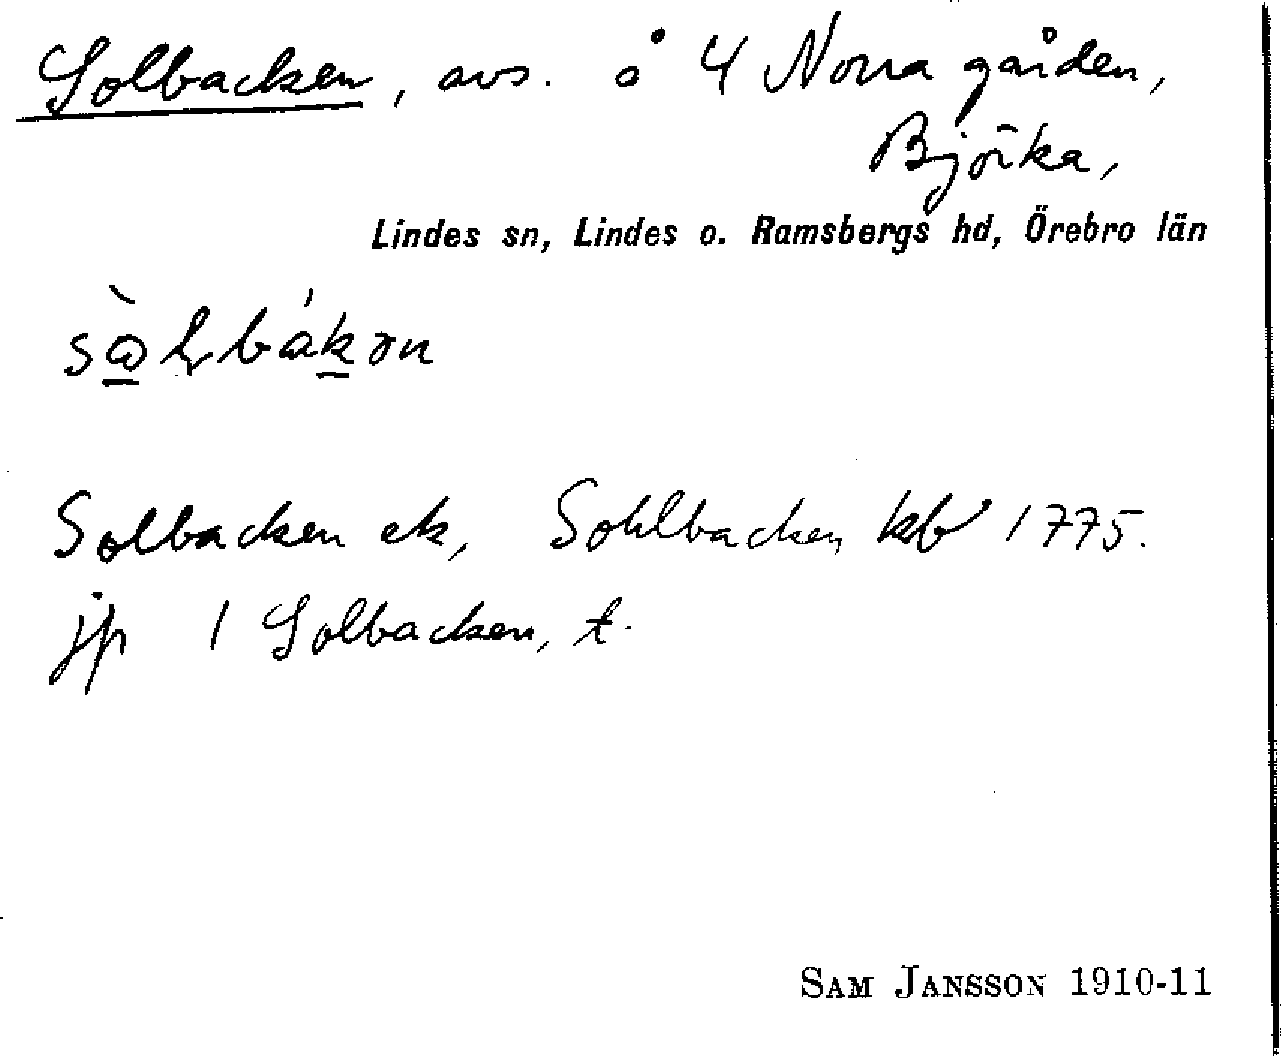 Solbacken, avs. å 4 Norra gården,
Björka,
Lindes sn, Lindes o. Ramsbergs hd, Örebro län
Solbacken ek, Sohlbacken kb 1775.
jp 1 Solbacken, t.
SAM JANSSON 1910-11